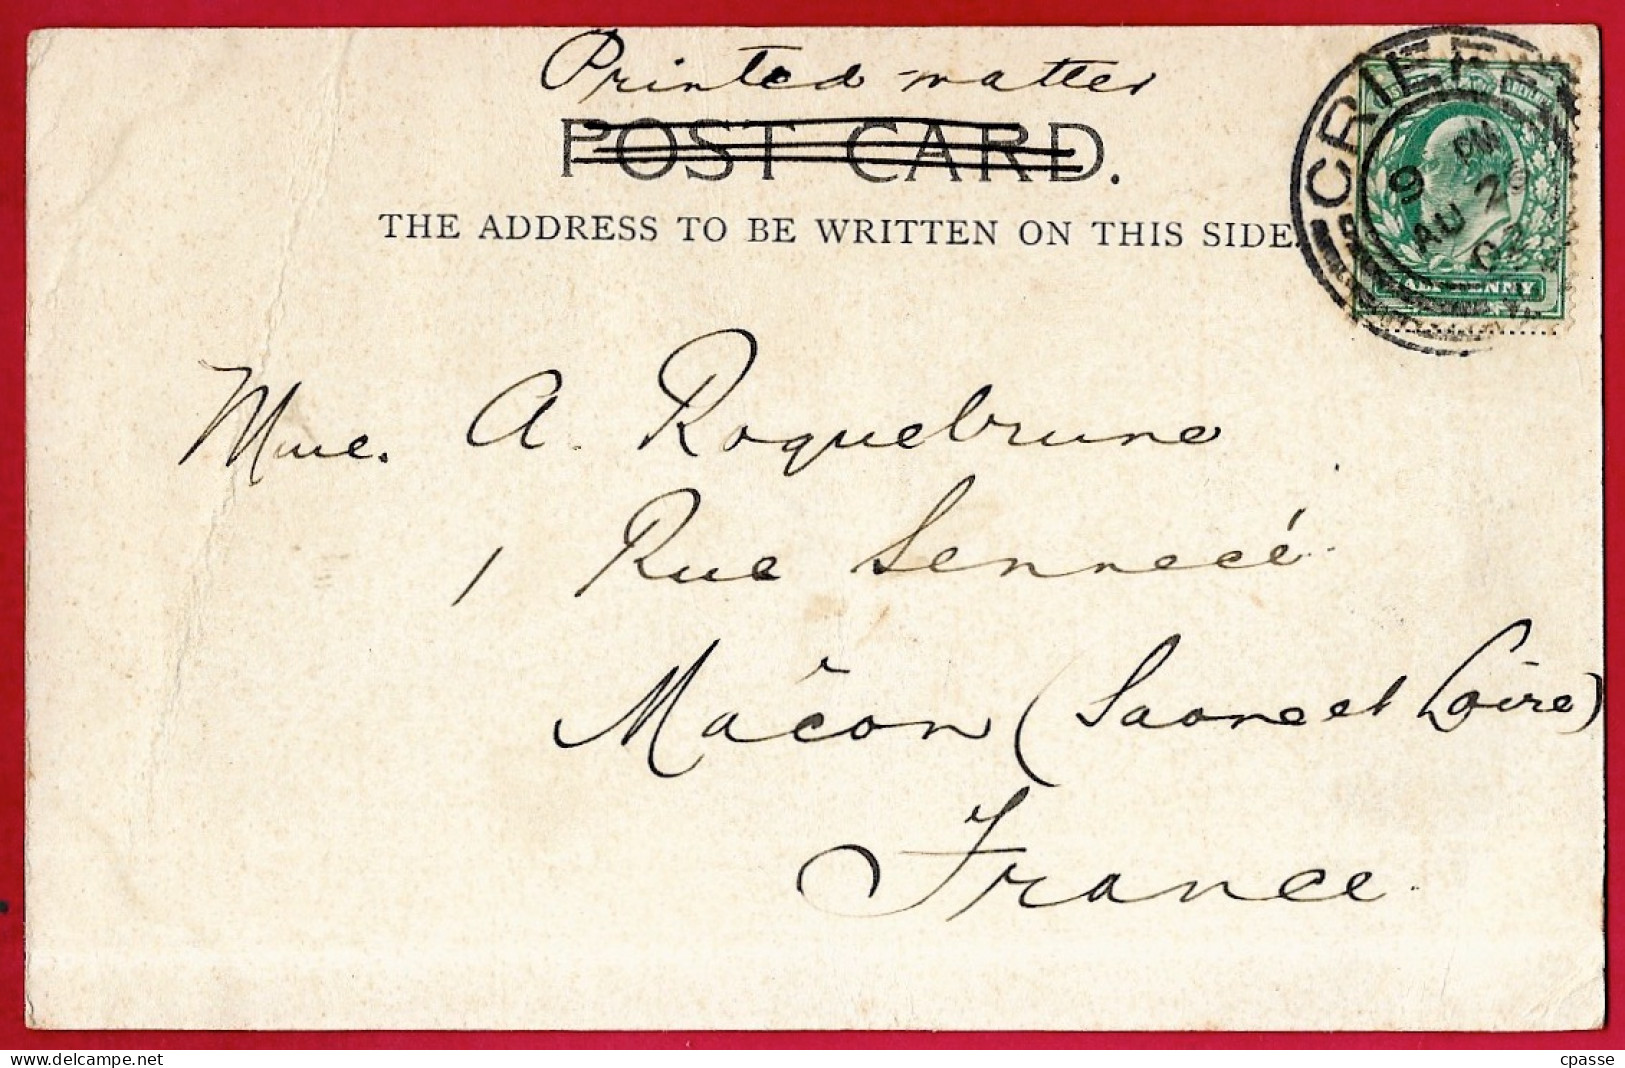 Printed matter
POST CARD.
THE ADDRESS TO BE WRITTEN ON THIS SIDE.
CRIEFF
9 PM
AU 2
02
HALFPENNY
Mme. A. Roquebrune
1 Rue Sennecé
Mâcon (Saone et Loire)
France.
cpasse